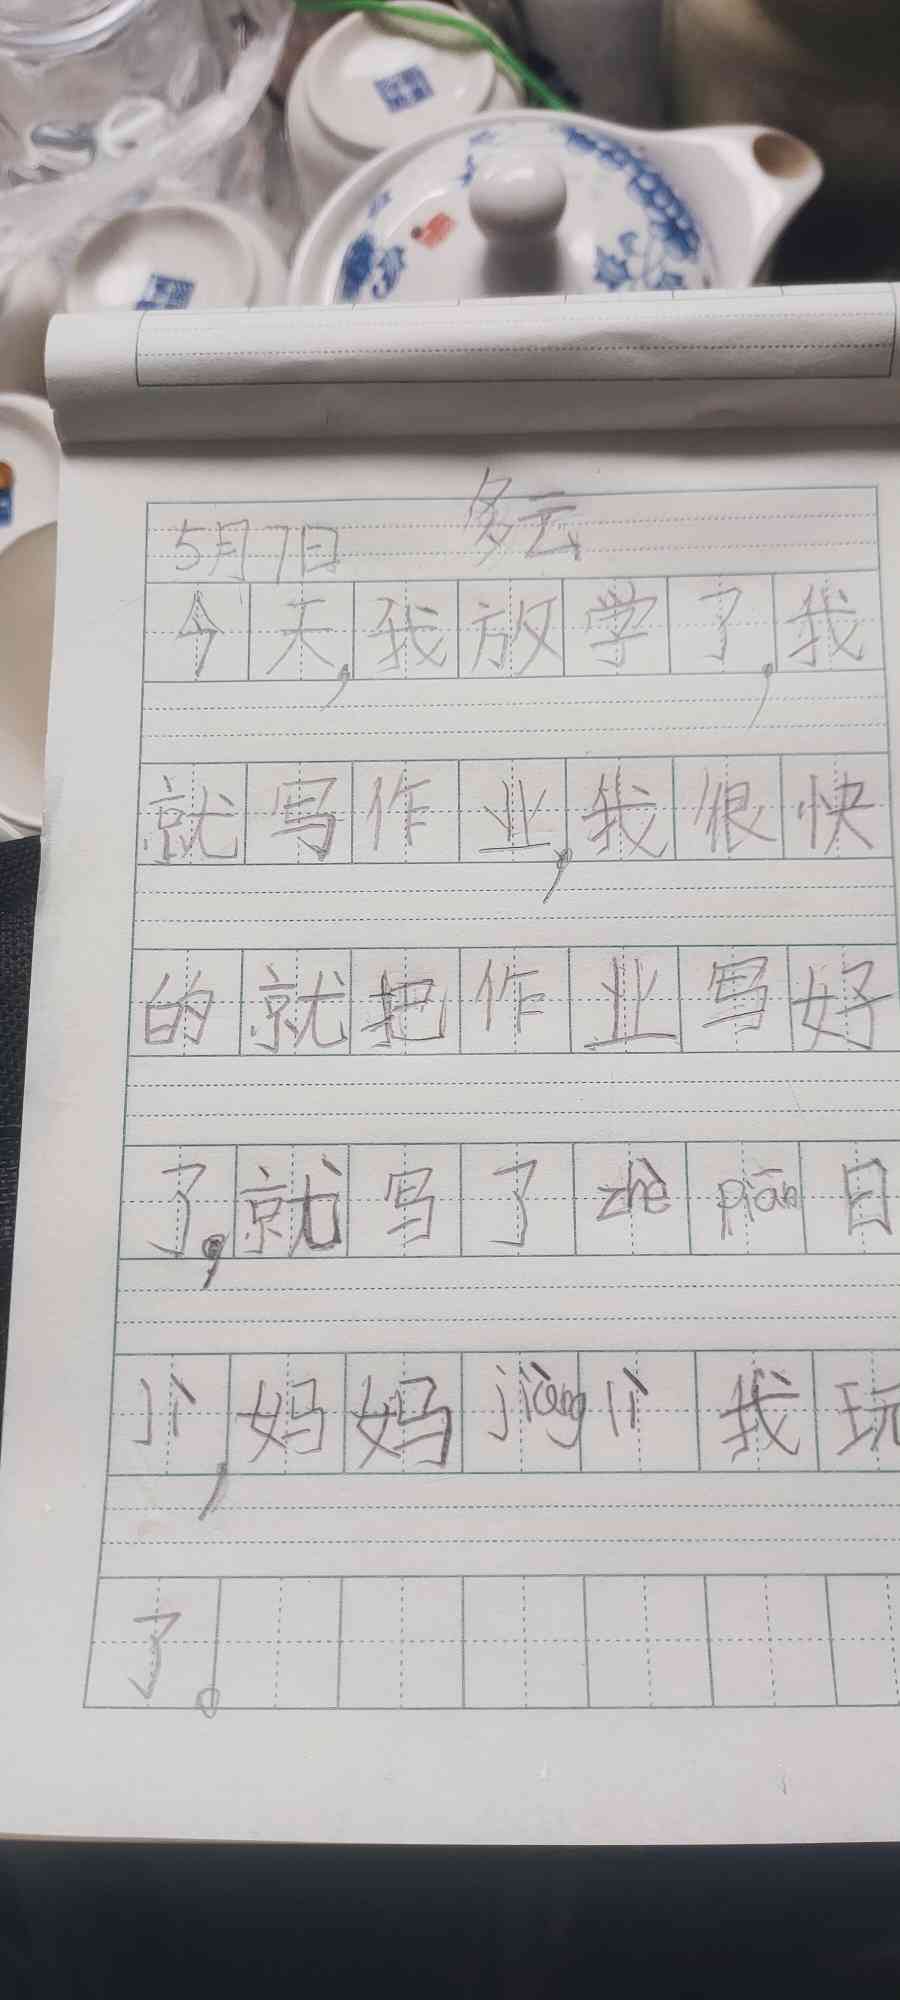 5月7日 多云
今天,我放学了,我
就写作业,我很快
的就把作业写好
了,就写了zhè piān日
jì,妈妈jiǎng lì我玩
了。